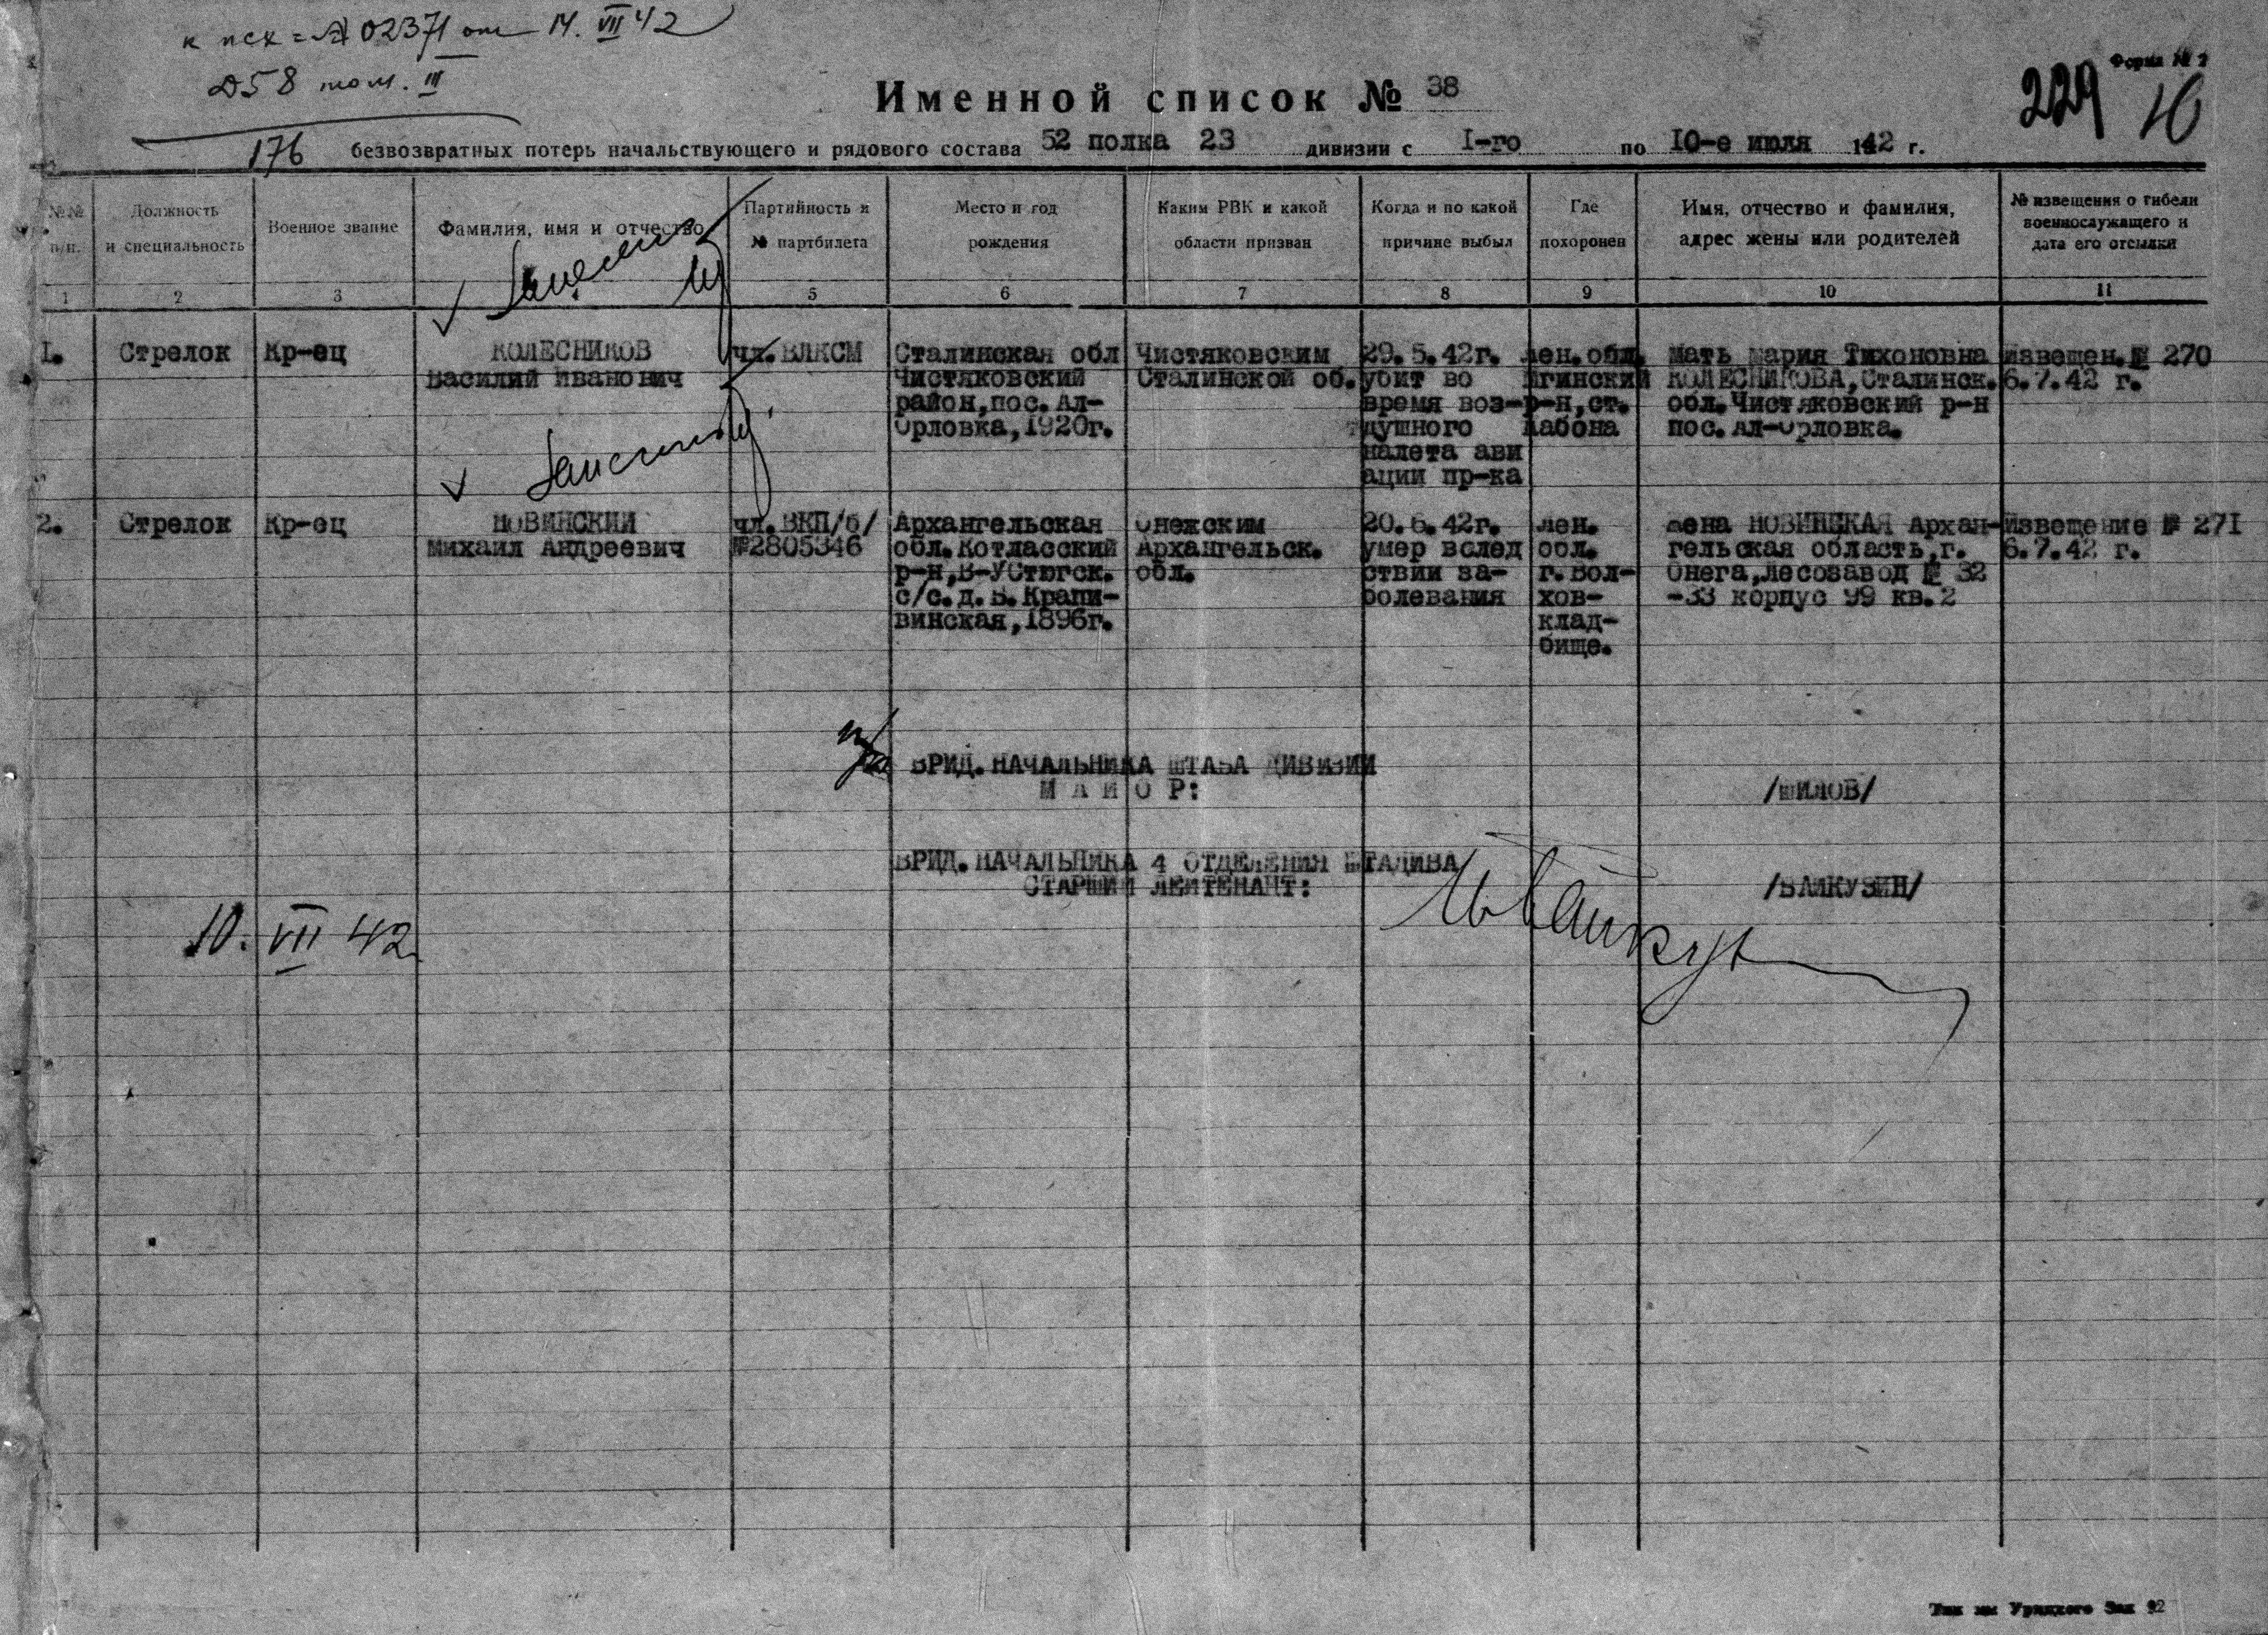 02371 от 14. VII 42
Д58 том. III
176
Форма № 2
229
10
Именной список № 38
безвозвратных потерь начальствующего и рядового состава 52 полка 23 дивизии с I-го по 10-е июля 1942 г.
№№ п/п.
Должность и специальность
Военное звание
Фамилия, имя и отчество
Партийность и № партбилета
Место и год рождения
Каким РВК и какой области призван
Когда и по какой причине выбыл
Где похоронен
Имя, отчество и фамилия, адрес жены или родителей
№ извещения о гибели военнослужащего и дата его отсылки
1 2 3 5 6 7 8 9 10 11
I.
Стрелок
Кр-ец
КОЛЕСНИКОВ
Василий Иванович
чл. ВЛКСМ
Сталинская обл
Чистяковский
район, пос. Ал-
Орловка, 1920г.
Чистяковским
Сталинской об.
29.5.42г.
убит во
время воз-
душного
налета ави
ации пр-ка
Лен. обл.
Мгинский
р-н, ст.
Жабона
Мать Мария Тихоновна
КОЛЕСНИКОВА, Сталинск.
обл. Чистяковский р-н
пос. Ал-Орловка.
Извещен. № 270
6.7.42 г.
2.
Стрелок
Кр-ец
НОВИНСКИЙ
Михаил Андреевич
чл. ВКП/б/
№2805346
Архангельская
обл. Котласский
р-н, В-УСтюгск.
с/с. д. В. Крапи-
винская, 1896г.
Онежским
Архангельск.
обл.
20.6.42г.
умер вслед
ствии за-
болевания
Лен.
обл.
г. Вол-
хов-
клад-
бище.
Жена НОВИНСКАЯ Архан-
гельская область, г.
Онега, Лесозавод № 32
-33 корпус 99 кв. 2
Извещение № 27I
6.7.42 г.
ВРИД. НАЧАЛЬНИКА ШТАБА ДИВИЗИИ
М А Й О Р:
/ШИЛОВ/
ВРИД. НАЧАЛЬНИКА 4 ОТДЕЛЕНИЯ ШТАДИВА
СТАРШИЙ ЛЕЙТЕНАНТ:
/ВАЙКУЗИН/
10. VII 42
Тип им Урицкого Зак 92